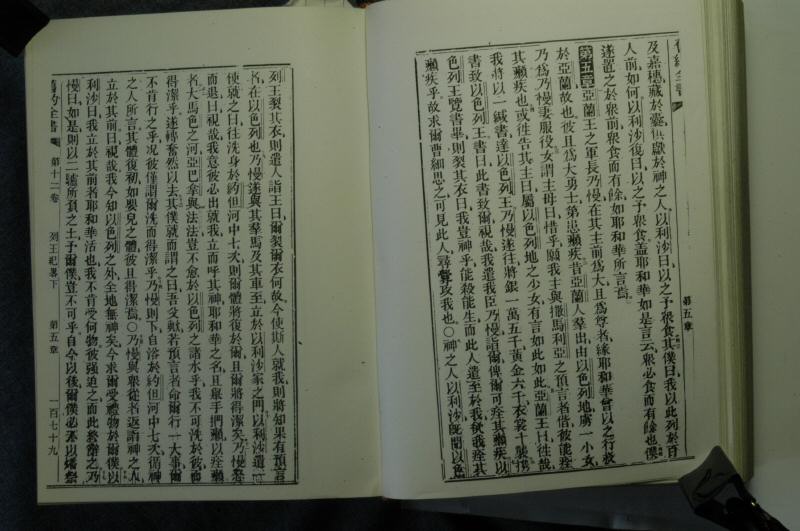 舊約全書
第五章
及嘉穗藏於橐供獻於神之人以利沙曰以之予衆食其僕曰我以此列於百
人前如何以利沙復曰以之予衆食蓋耶和華如是言云衆必食而有餘也僕
遂置之於衆前衆食而有餘如耶和華所言焉
第五章亞蘭王之軍長乃慢在其主前爲大且爲尊者緣耶和華曾以之行救
於亞蘭故也彼且爲大勇士第患癩疾昔亞蘭人羣出由以色列地虜一小女
乃爲乃慢妻服役女謂主母曰惜乎願我主與撒馬利亞之預言者偕彼能痊
其癩疾也或往告其主曰屬以色列地之少女有言如此如此亞蘭王曰往哉
我將以一緘書達以色列王乃慢遂往將銀一萬五千黃金六千衣裳十襲
書致以色列王書曰此書致爾視哉我遣我臣乃慢詣爾俾爾可痊其癩疾以
色列王覽書畢則裂其衣曰我豈神乎能殺能生而此人遣至於我使我痊其
癩疾乎故求爾曹細思之可見此人尋釁攻我也〇神之人以利沙旣聞以色
列王裂其衣則遣人詣王曰爾裂爾衣何故今使斯人就我則將知果有預言
者在以色列也乃慢遂與其羣馬及其車至立於以利沙家之門以利沙遣
使就之曰往洗身於約但河中七次則爾體將復於爾且爾將得潔矣乃慢怒
而退曰視哉我意彼必出就我立而呼其神耶和華之名且舉手捫癩以痊癩
者大馬色之河亞巴拿與法法豈不愈於以色列之諸水乎我不可洗於彼而
得潔乎遂轉奮然以去其僕就而謂之曰吾父歟若預言者命爾行一大事爾
不肯行之乎况彼僅謂爾洗而得潔乎乃慢則下自浴於約但河中七次循神
之人所言其體復初如嬰兒之體彼且得潔焉〇乃慢與衆從者返詣神之人
立於其前曰視哉我今知以色列之外全地無神矣今求爾受禮物於爾僕以
利沙曰我立於其前者耶和華活也我不肯受何物彼強迫之而此終辭之乃
慢曰如是則以二騾所負之土予爾僕豈不可乎自今以後爾僕必不以燔祭
舊約全書 第十二卷 列王紀畧下 第五章 一百七十九